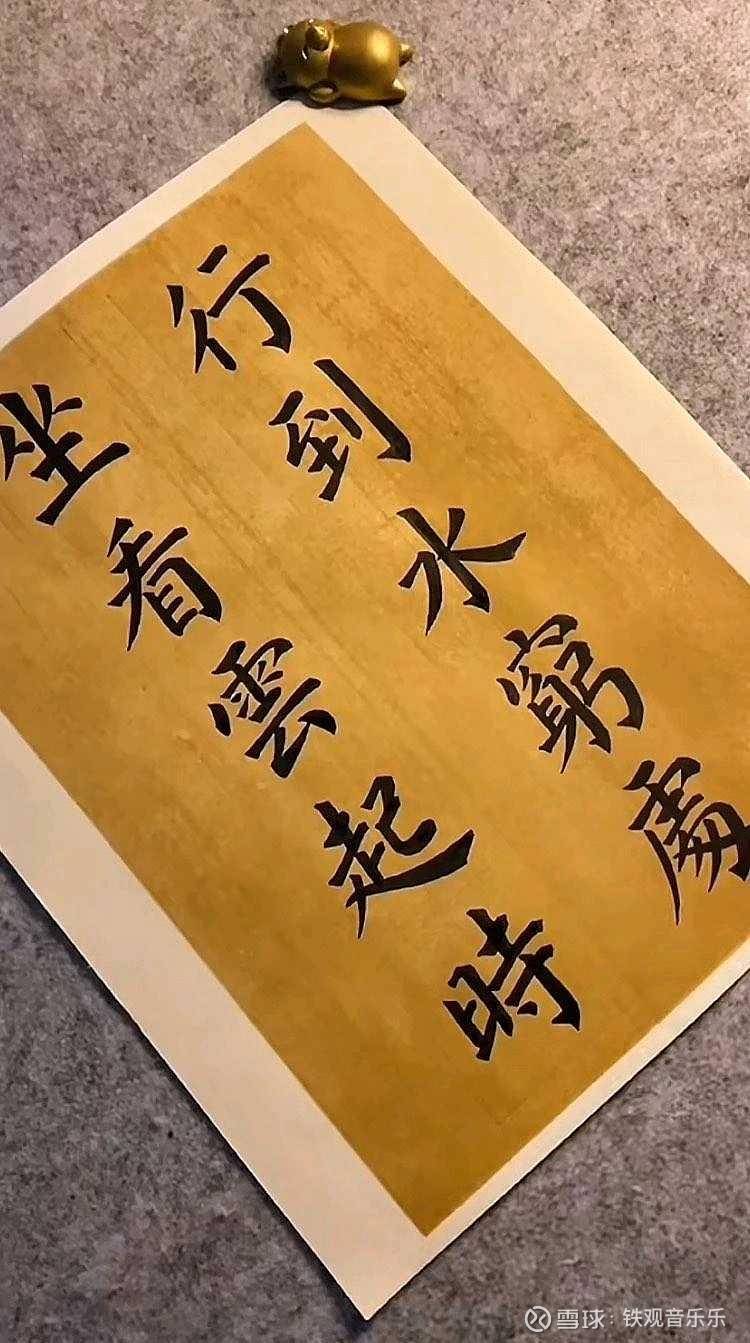 行到水窮處
坐看雲起時
雪球：铁观音乐乐